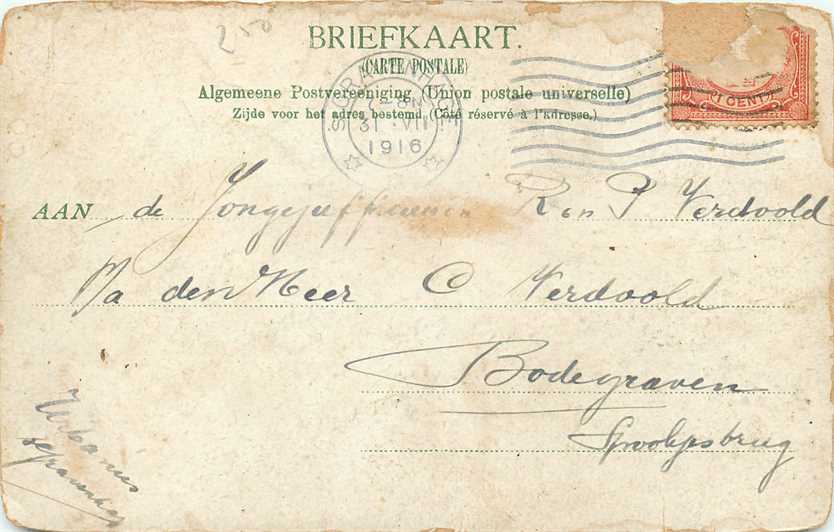 250
BRIEFKAART.
(CARTE POSTALE)
Algemeene Postvereeniging (Union postale universelle)
Zijde voor het adres bestemd (Côté réservé à l'adresse.)
31 VII
1916
CENT
AAN de Jongejuffrouwen R en P Verdoold
P/a den Heer C Verdoold
Bodegraven
sGravenhage